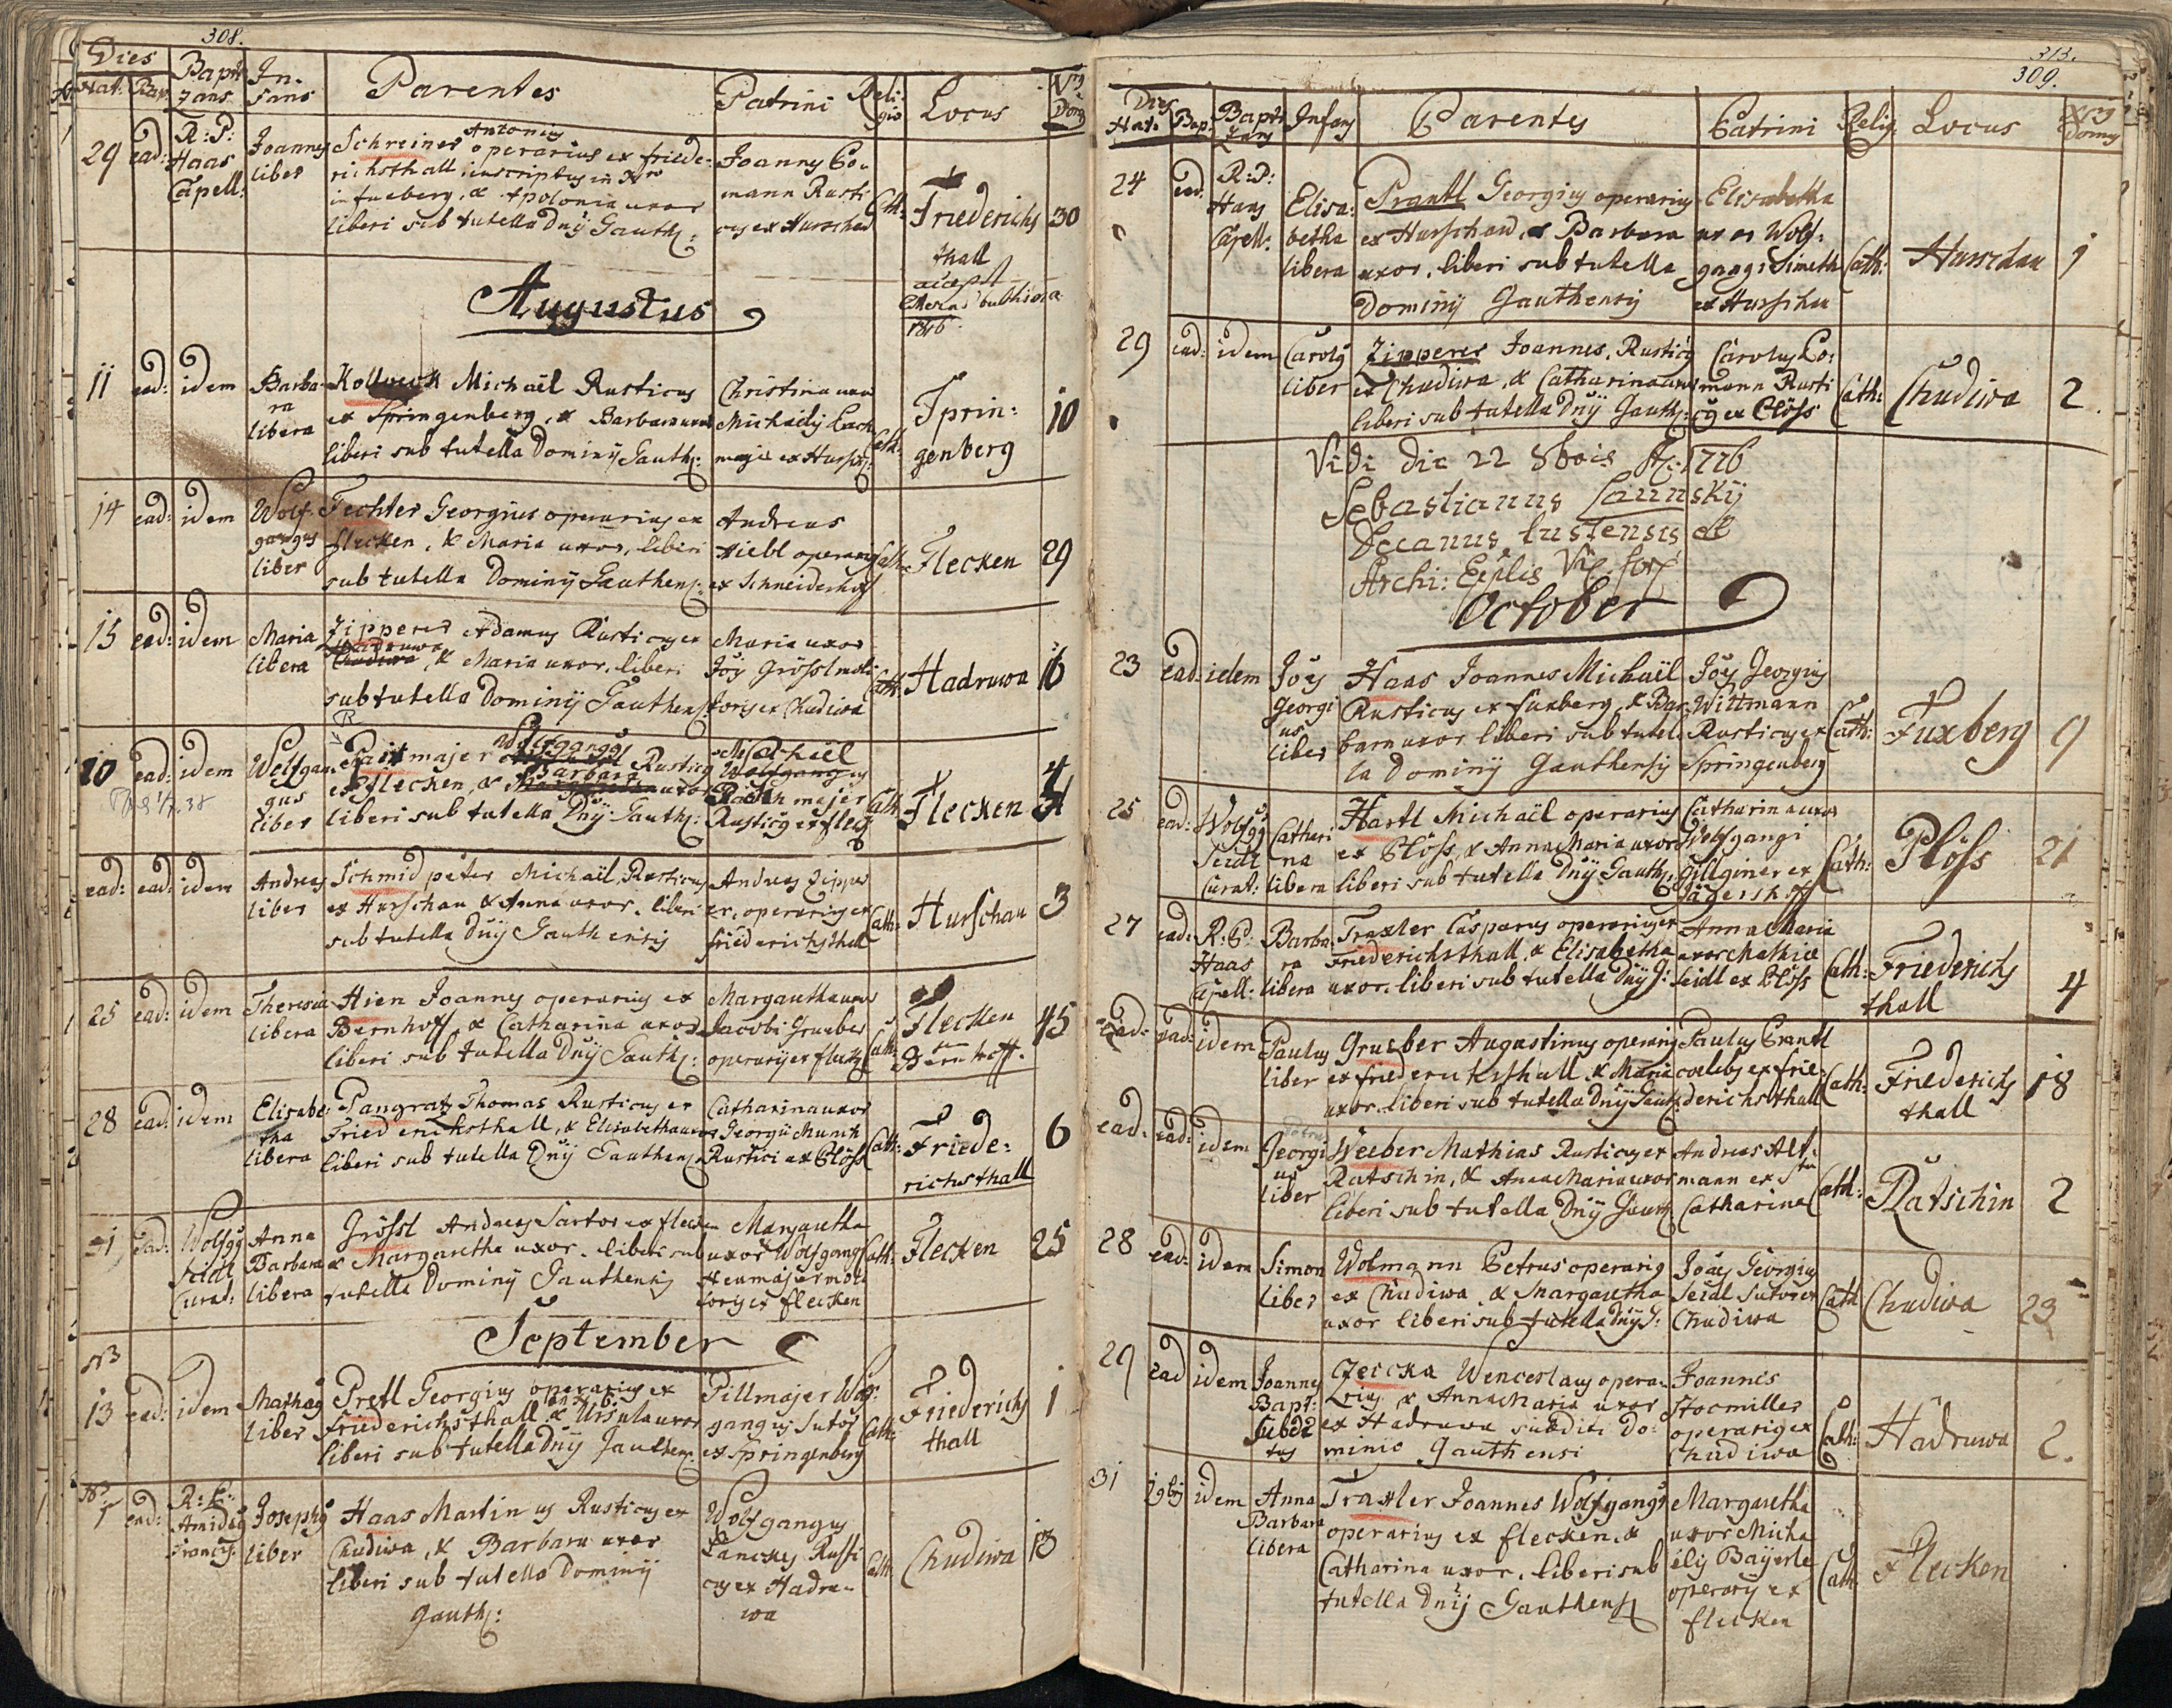 308.
Dies
Nat: Bap:
Bapti
zans
In-
fans
Parentes
Patrini
Reli
gio
Locus
Nrs
Dom
29 ead: R: P: Haas Capell:
Joannes liber
Schreiner Antonius operarius ex friede-
richsthall, inscriptus in Nro
in fuxberg, & Apolonia uxor
liberi sub tutella Dnÿ Gauth:
Joannes Co-
mann Rusti
cus ex Hurschau
Cath:
Friederichs
thall
30
Augustus
11 ead: idem
Barba-
ra
libera
Kollbeck Michaël Rusticus
ex Springenberg, & Barbara uxor
liberi sub tutella Dominÿ Gauth:
Christina uxor
Michaelÿ
ex Hursch:
Cath:
Sprin-
genberg
10
14 ead: idem
Wolf-
gangus
liber
Fechter Georgius operarius ex
flecken, & Maria uxor, liberi
sub tutella Dominÿ Gauthens:
Andreas
Hiebl operarius
ex Schneiderhof
Cath:
Flecken
29
15 ead: idem
Maria
libera
Zipperer Adamus Rusticus ex
Hadruwa
Chudiwa, & Maria uxor, liberi
sub tutella Dominÿ Gauthens:
Maria uxor
Joÿ Grössl moli
toris ex Chudiwa
Cath:
Hadruwa
16
20 ead: idem
Wolfgan
gus
liber
Paitmajer Wolfgangg Rusticg
ex flecken, & Barbara uxor
liberi sub tutella Dnÿ Gauth:
Michaël
Wolfgangus
Paithmajer
Rusticg ex fleck
Cath:
Flecken
4
ead: ead: idem
Andreas
liber
Schmid peter Michaël, Rusticus
ex Hurschau & Anna uxor, liberi
sub tutella Dnÿ Gauthensis
Andreas Zipper
er, operarius ex
friederichsthall
Cath:
Hurschau
3
25 ead: idem
Theresia
libera
Hien Joannes operarius ex
Bernhoff, & Catharina uxor
liberi sub tutella Dnÿ Gauth:
Margaretha uxor
Jacobi Grueber
operarÿ ex fleck
Cath:
Flecken
Bernhoff.
45
28 ead: idem
Elisabe-
tha
libera
Pangratz Thomas Rusticus ex
Friederichsthall, & Elisabetha uxor
liberi sub tutella Dnÿ Gauthens:
Catharina uxor
Georgii Munch
Rustici ex Plöss
Cath:
Friede-
richsthall
6
31 ead: Wolfgg Seidl Curat:
Anna
Barbara
libera
Grössl Andreas Sartor ex flecken
& Margaretha uxor, liberi sub
tutella Dominÿ Gauthensis
Margaretha
uxor Wolfgangi
Heumajer moli
toris ex flecken
Cath:
Flecken
25
September
NB
13 ead: idem
Mathæus
liber
Pretl Georgius operarius ex
friederichsthall, & Ursula uxor
liberi sub tutella Dnÿ Gauthens:
Pillmajer Wolf-
gangus Sutor
ex Springenberg
Cath:
Friederichs
thall
1
ead: R: P: Amideus Francis:
Josephus
liber
Haas Martinus Rusticus ex
Chudiwa, & Barbara uxor
liberi sub tutella Dominÿ
Gauth:
Wolfgangus
Lanckes Rusti
cus ex Hadru-
wa
Cath:
Chudiwa
13
313.
309.
Dies
Nat: Bap:
Bapti
zans
Infans
Parentes
Patrini
Relig:
Locus
Nrs
Domus
24 ead: R: P: Haas Capell:
Elisa-
betha
libera
Prantl Georgius operarius
ex Hurschau, & Barbara
uxor, liberi sub tutella
Dominÿ Gauthensis
Elisabetha
uxor Wolf-
gangi Simeth
ex Hurschau
Cath:
Hurschau
1
29 ead: idem
Carolg
liber
Zipperer Joannes, Rusticg
ex Chudiwa, & Catharina uxor
liberi sub tutella Dnÿ Gauth:
Carolus Co-
mann Rusti
cg ex Plöss
Cath:
Chudiwa
2.
Vidi die 22 8bris A: 1776
Sebastianus Launskÿ
Decanus tustensis et
Archi: Epplis Vic: for:
October
23 ead: idem
Joes
Georgi
us
liber
Haas Joannes Michaël
Rusticus ex fuxberg, & Bar-
bara uxor liberi sub tutel-
la Dominÿ Gauthensis
Joes Georgius
Wittmann
Rusticus ex
Springenberg
Cath:
Fuxberg
9
25 ead: Wolfgg Seidl Curat:
Cathari
na
libera
Hartl Michaël operarius
ex Plöss, & Anna Maria uxor
liberi sub tutella Dnÿ Gauth:
Catharina uxor
Wolfgangi
Gillginer ex
Jägershoff
Cath:
Plöss
21
27 ead: R: P: Haas Capell:
Barba-
ra
libera
Traxler Casparus operarius ex
Friederichsthall, & Elisabetha
uxor, liberi sub tutella Dnÿ G:
Anna Maria
uxor Mathiæ
Seidl ex Plöss
Cath:
Friederichs
thall
4
ead: ead: idem
Paulus
liber
Grueber Augustinus operarius
ex friederichsthall, & Maria
uxor, liberi sub tutella Dnÿ Gauth:
Paulus Prantl
coelebs ex frie-
derichsthall
Cath:
Friederichs
thall
18
ead: ead: idem
Georgi
us
liber
Weeber Mathias Rusticus ex
Ratschin, & Anna Maria uxor
liberi sub tutella Dnÿ Gauth:
Andreas Alt-
mann ex Sta
Catharina
Cath:
Ratschin
2
28 ead: idem
Simon
liber
Wolmann Petrus operarius
ex Chudiwa & Margaretha
uxor liberi sub tutella Dnÿ G:
Joães Georgius
Seidl Sutor ex
Chudiwa
Cath
Chudiwa
23
29 ead idem
Joannes
Bapt:
Subdi
tus
Czeicka Wenceslaus opera-
rius & Anna Maria uxor
ex Hadruwa subditi Do-
minio Gauthensi
Joannes
Stocmiller
operarius ex
Chudiwa
Cath:
Hadruwa
2.
31 19bris idem
Anna
Barbara
libera
Traxler Joannes Wolfgangg
operarius ex flecken, &
Catharina uxor, liberi sub
tutella Dnÿ Gauthens
Margaretha
uxor Micha
elÿ Baÿerle
operarÿ ex
flecken
Cath
Flecken